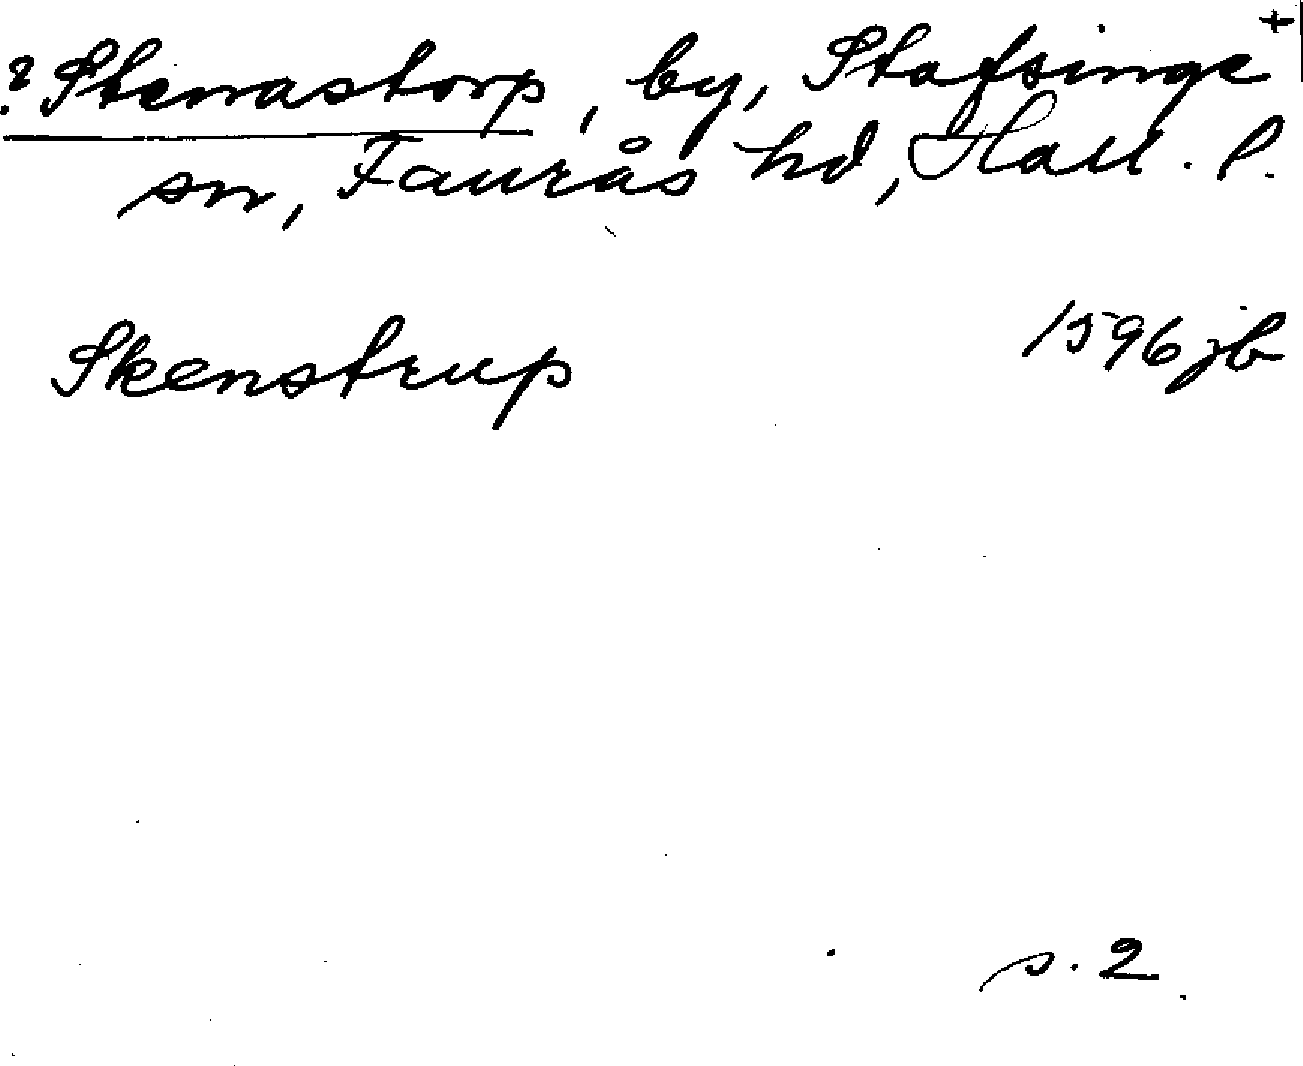 ? Stenastorp, by, Stafsinge +
sn, Faurås hd, Hall. l.
Skenstrup 1596 jb
s. 2